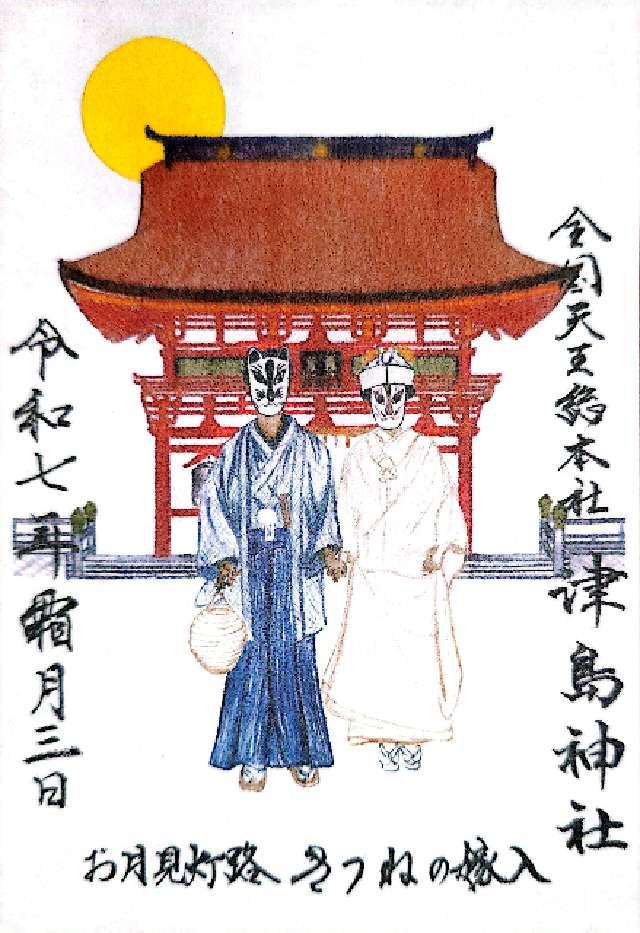 全国天王総本社 津島神社
令和七年霜月三日
お月見灯路 きつねの嫁入